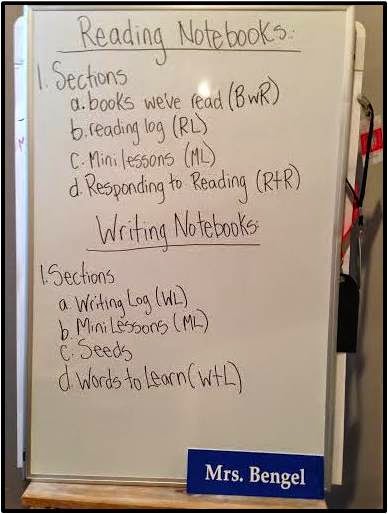 Reading Notebooks:
1. Sections
a. books we've read (BwR)
b. reading log (RL)
c. Mini lessons (ML)
d. Responding to Reading (RtR)
Writing Notebooks:
1. Sections
a. Writing Log (WL)
b. Mini Lessons (ML)
c. Seeds
d. Words to Learn (WtL)
Mrs. Bengel